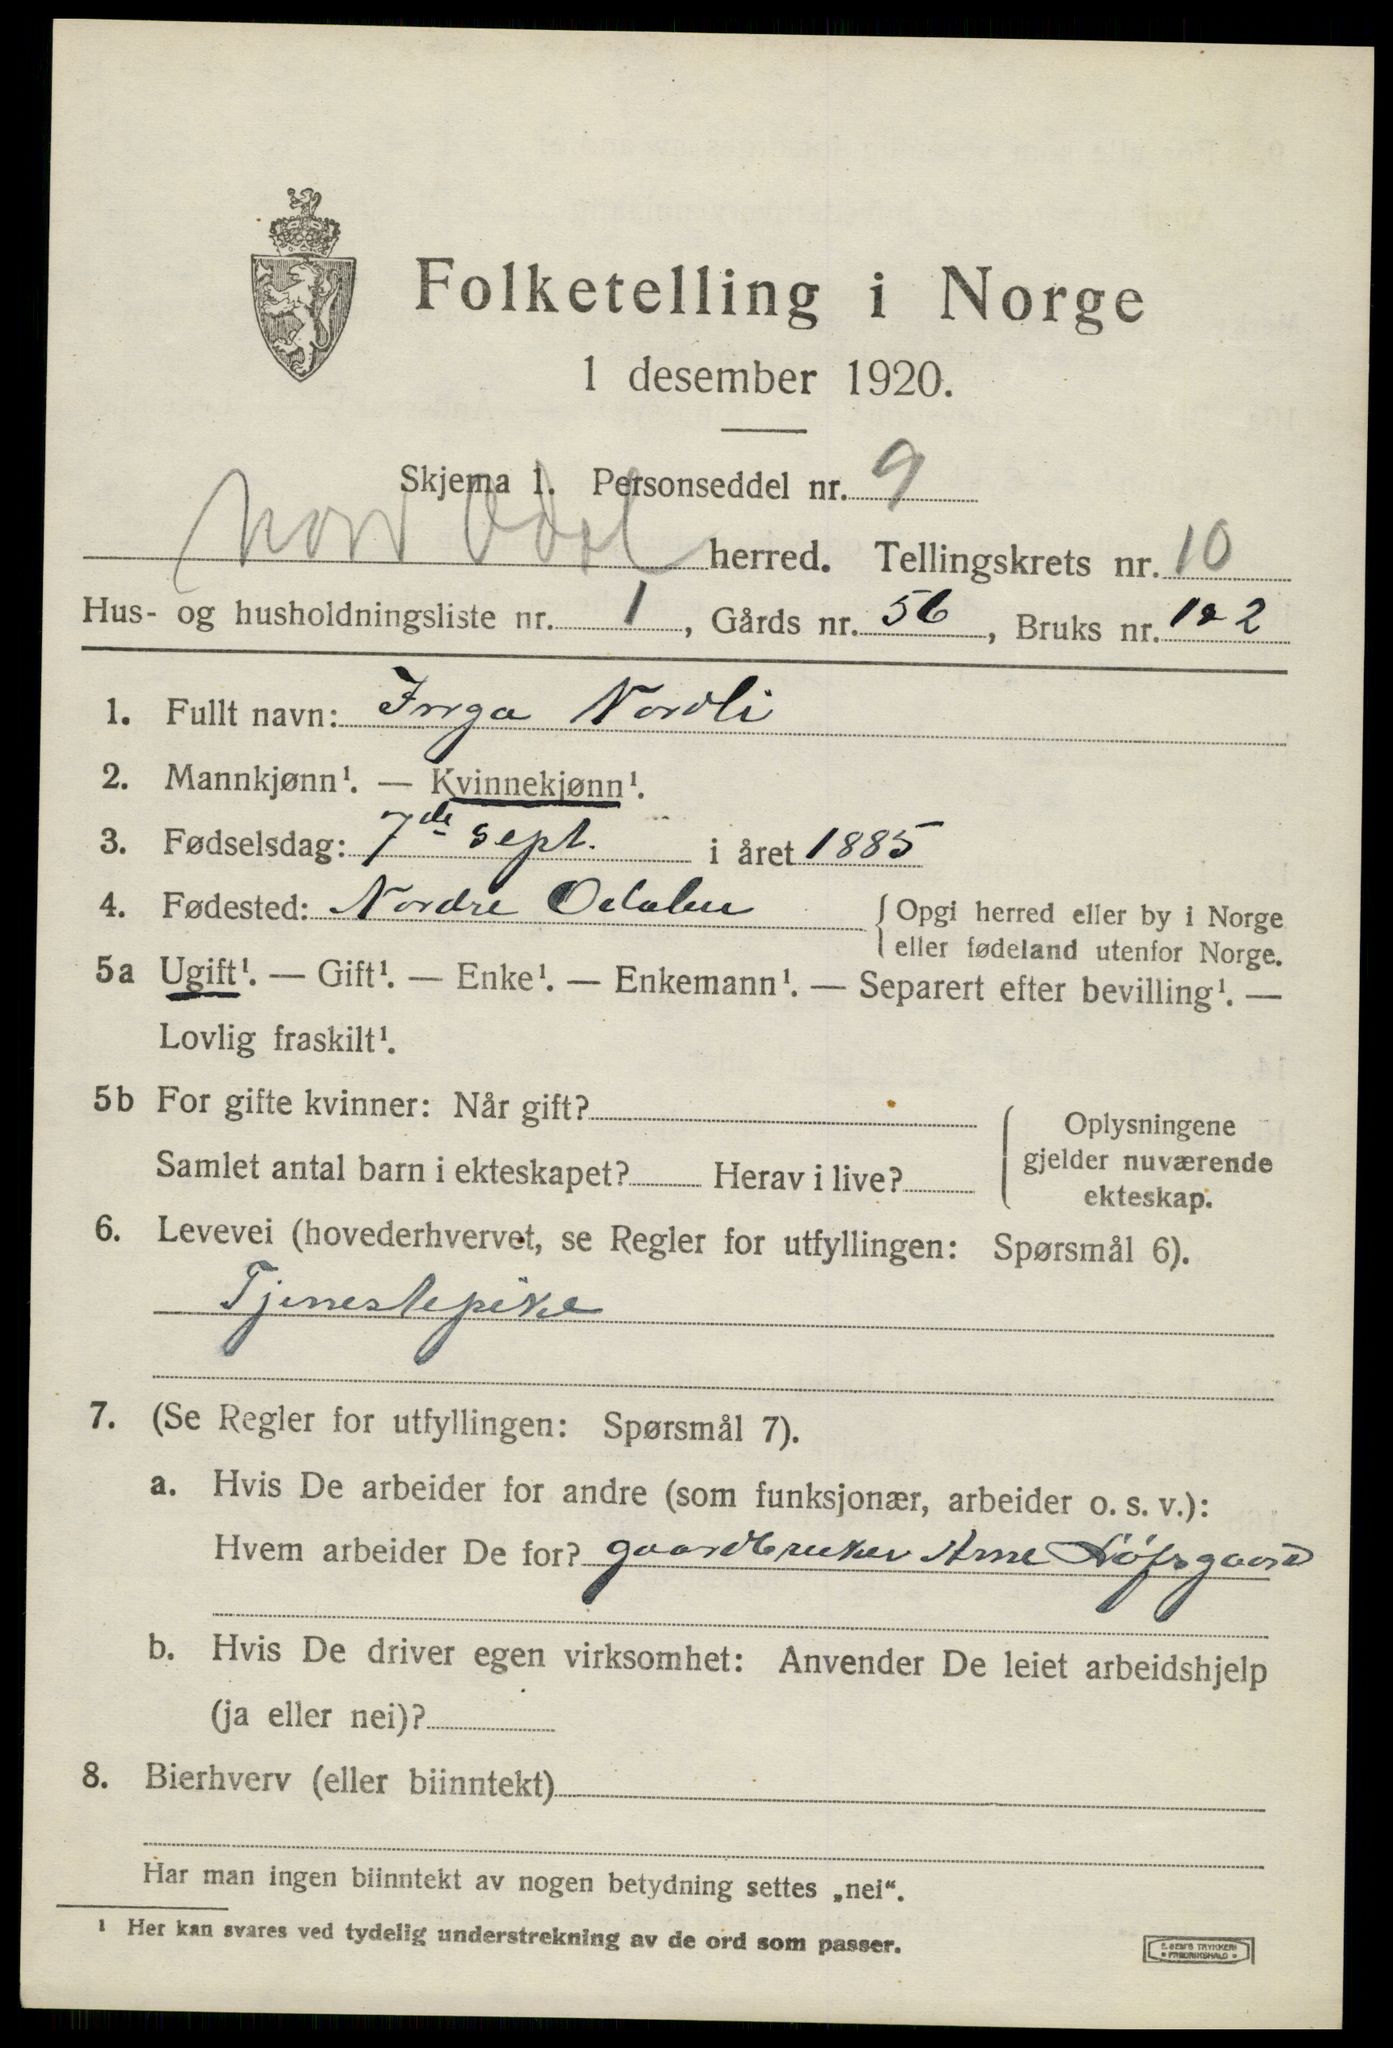 Folketelling i Norge
1 desember 1920.
Skjema 1. Personseddel nr. 9
Nord Odal herred. Tellingskrets nr. 10
Hus- og husholdningsliste nr. 1, Gårds nr. 56, Bruks nr. 1 & 2
1. Fullt navn: Inga Nordli
2. Mannkjønn¹. — Kvinnekjønn¹.
3. Fødselsdag: 7de sept. i året 1885
4. Fødested: Nordre Odalen { Opgi herred eller by i Norge
eller fødeland utenfor Norge.
5a Ugift¹. — Gift¹. — Enke¹. — Enkemann¹. — Separert efter bevilling¹. —
Lovlig fraskilt¹.
5b For gifte kvinner: Når gift?
Samlet antal barn i ekteskapet? Herav i live?
Oplysningene
gjelder nuværende
ekteskap.
6. Levevei (hovederhvervet, se Regler for utfyllingen: Spørsmål 6).
Tjenestepike
7. (Se Regler for utfyllingen: Spørsmål 7).
a. Hvis De arbeider for andre (som funksjonær, arbeider o. s. v.):
Hvem arbeider De for? gaardbruker Arne Løfsgaard
b. Hvis De driver egen virksomhet: Anvender De leiet arbeidshjelp
(ja eller nei)?
8. Bierhverv (eller biinntekt)
Har man ingen biinntekt av nogen betydning settes „nei“.
¹ Her kan svares ved tydelig understrekning av de ord som passer.
E. SEM'S TRYKKERI
• FREDRIKSHALD •